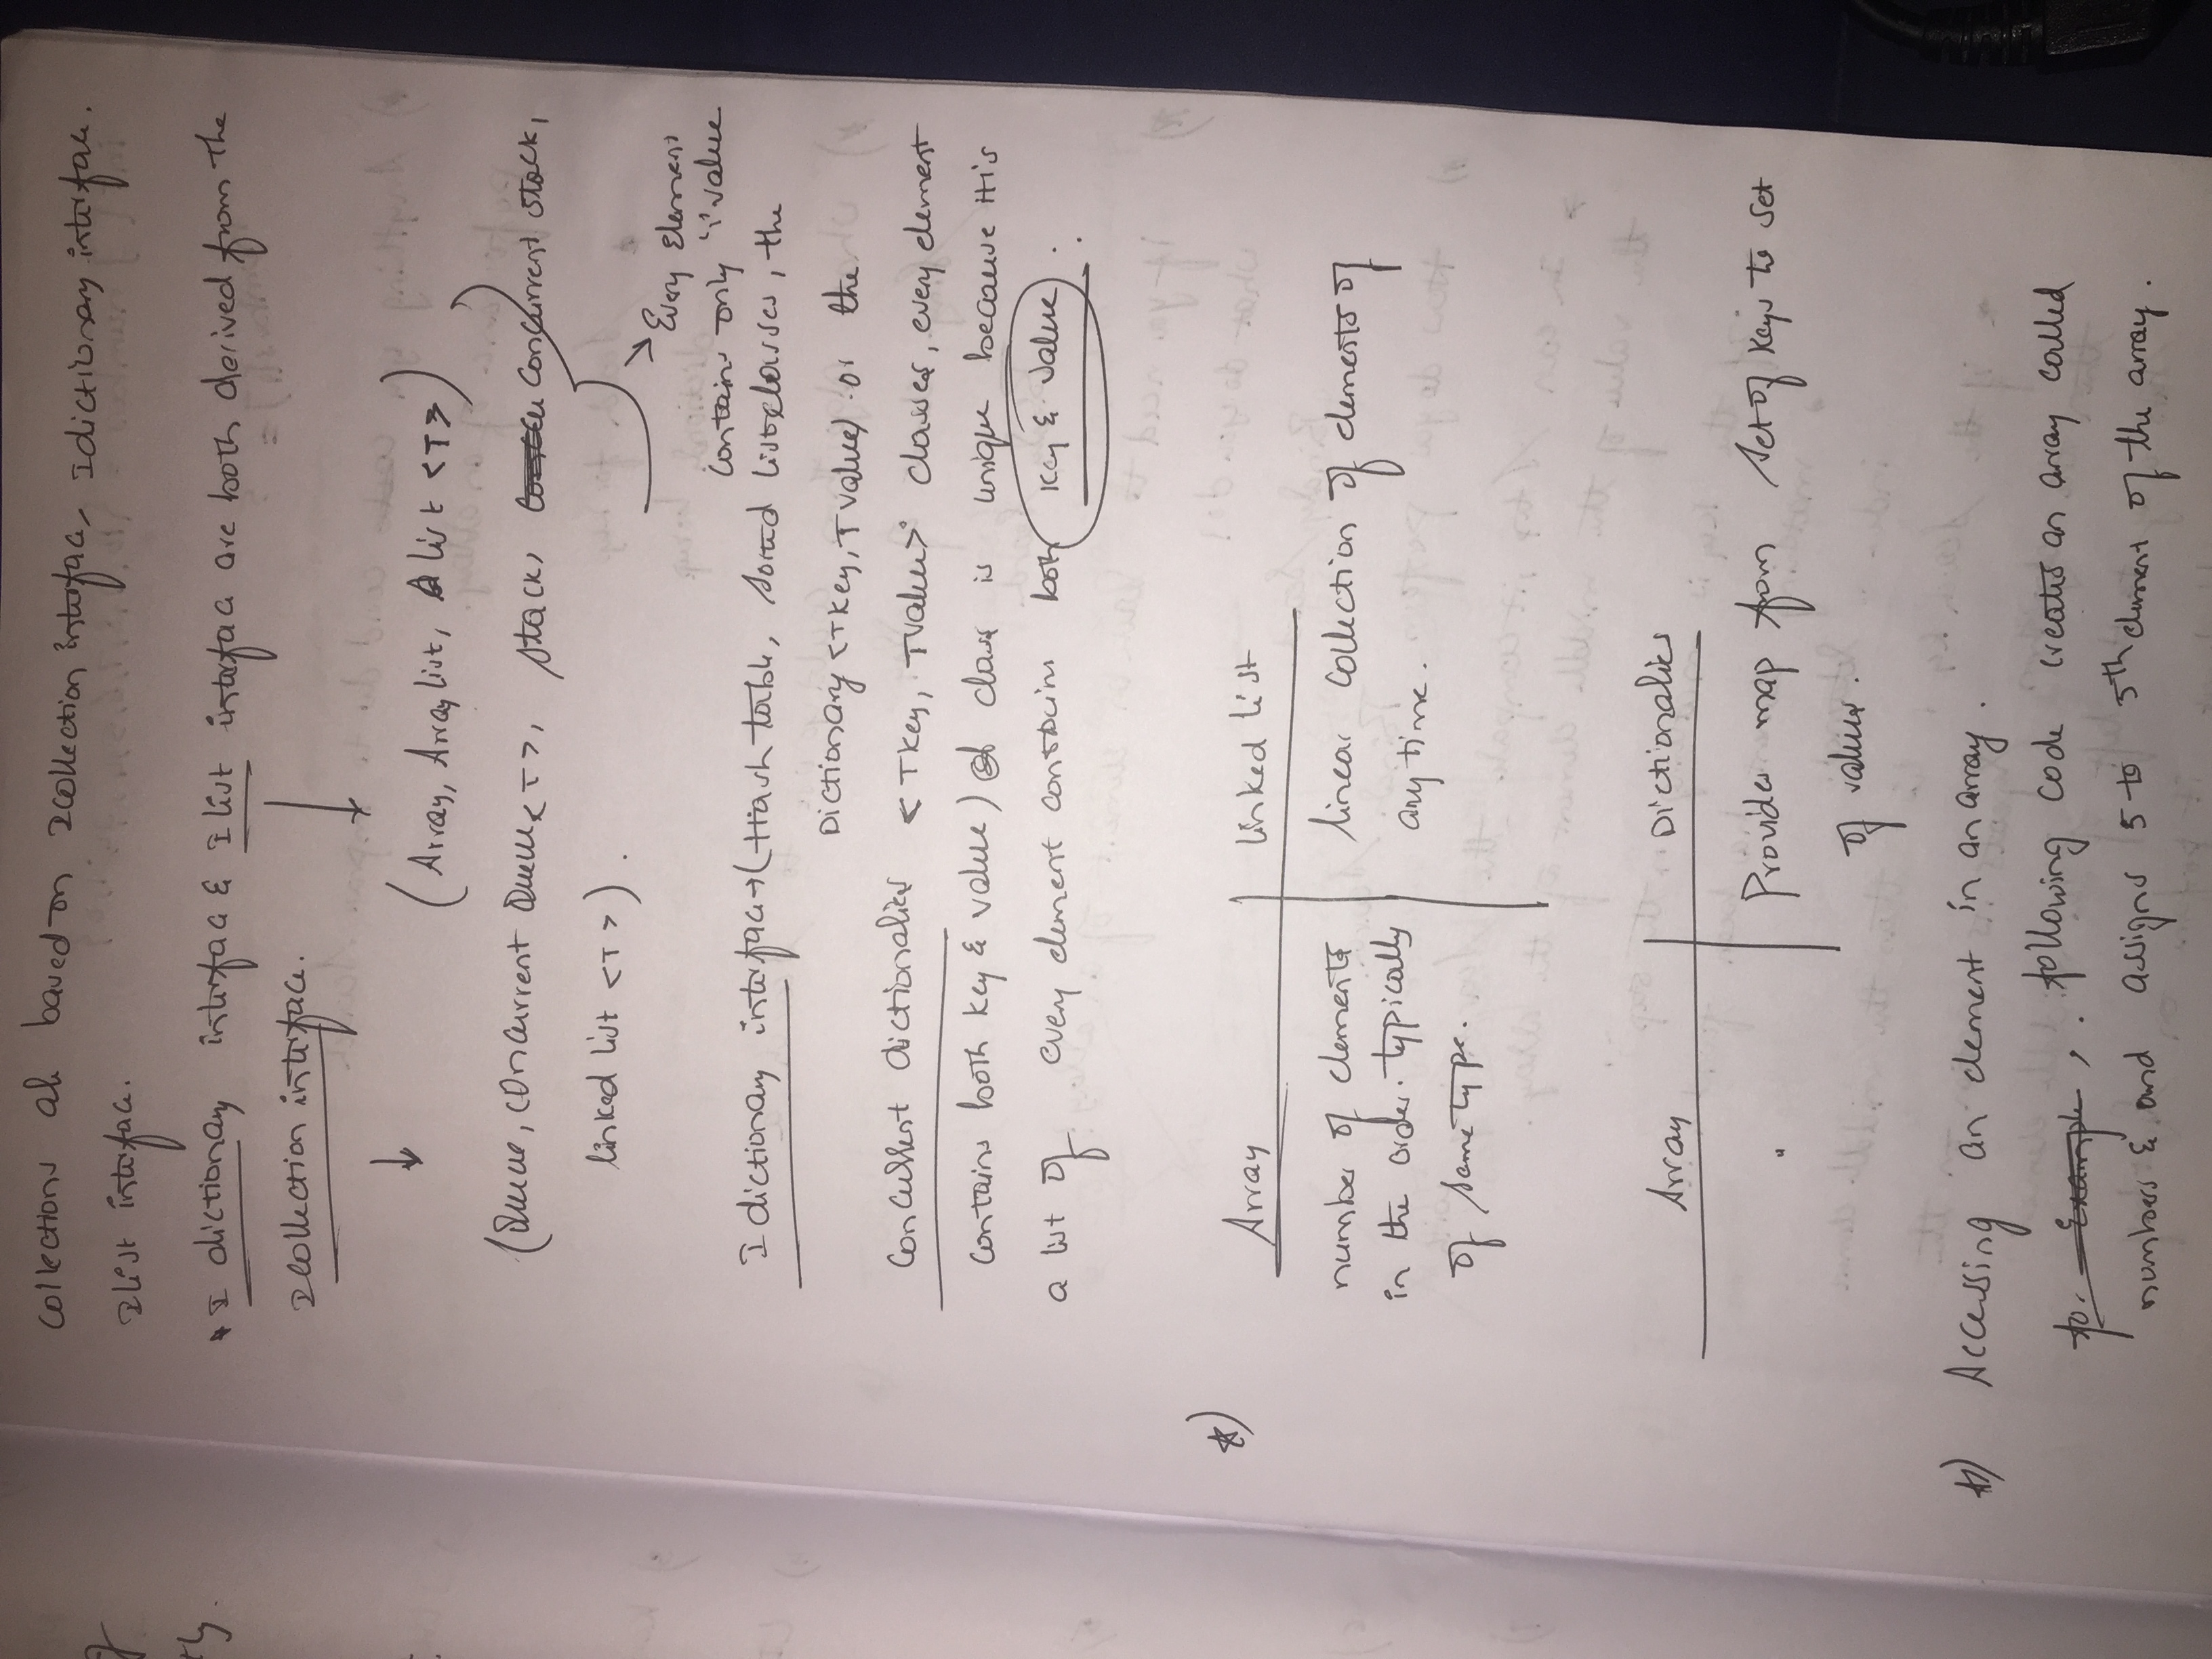 collections are based on Icollection interface, Idictionary interface.
Ilist interface.
* I dictionary interface & I list interface are both derived from the
Icollection interface.
↓ ↓
(Array, Array list, list <T>)
(Queue, concurrent Queue <T>, stack, Concurrent stack,
linked list <T>).
→ Every Element
contains only '1' value
I dictionary interface → (Hash table, Sorted list classes, the
Dictionary <TKey, T value) or the
Concurrent dictionaries <TKey, TValue> classes, every element
contains both key & value) class is unique because it is
a list of every element contains both Key & Value.
*) Array | linked list
number of elements
in the order. typically
of same type.
linear collection of elements of
any time.
Array | Dictionaries
" | Provides map from set of keys to set
of values.
*) Accessing an element in an array.
for Example, . following code creates an array called
numbers & and assigns 5 to 5th element of the array.